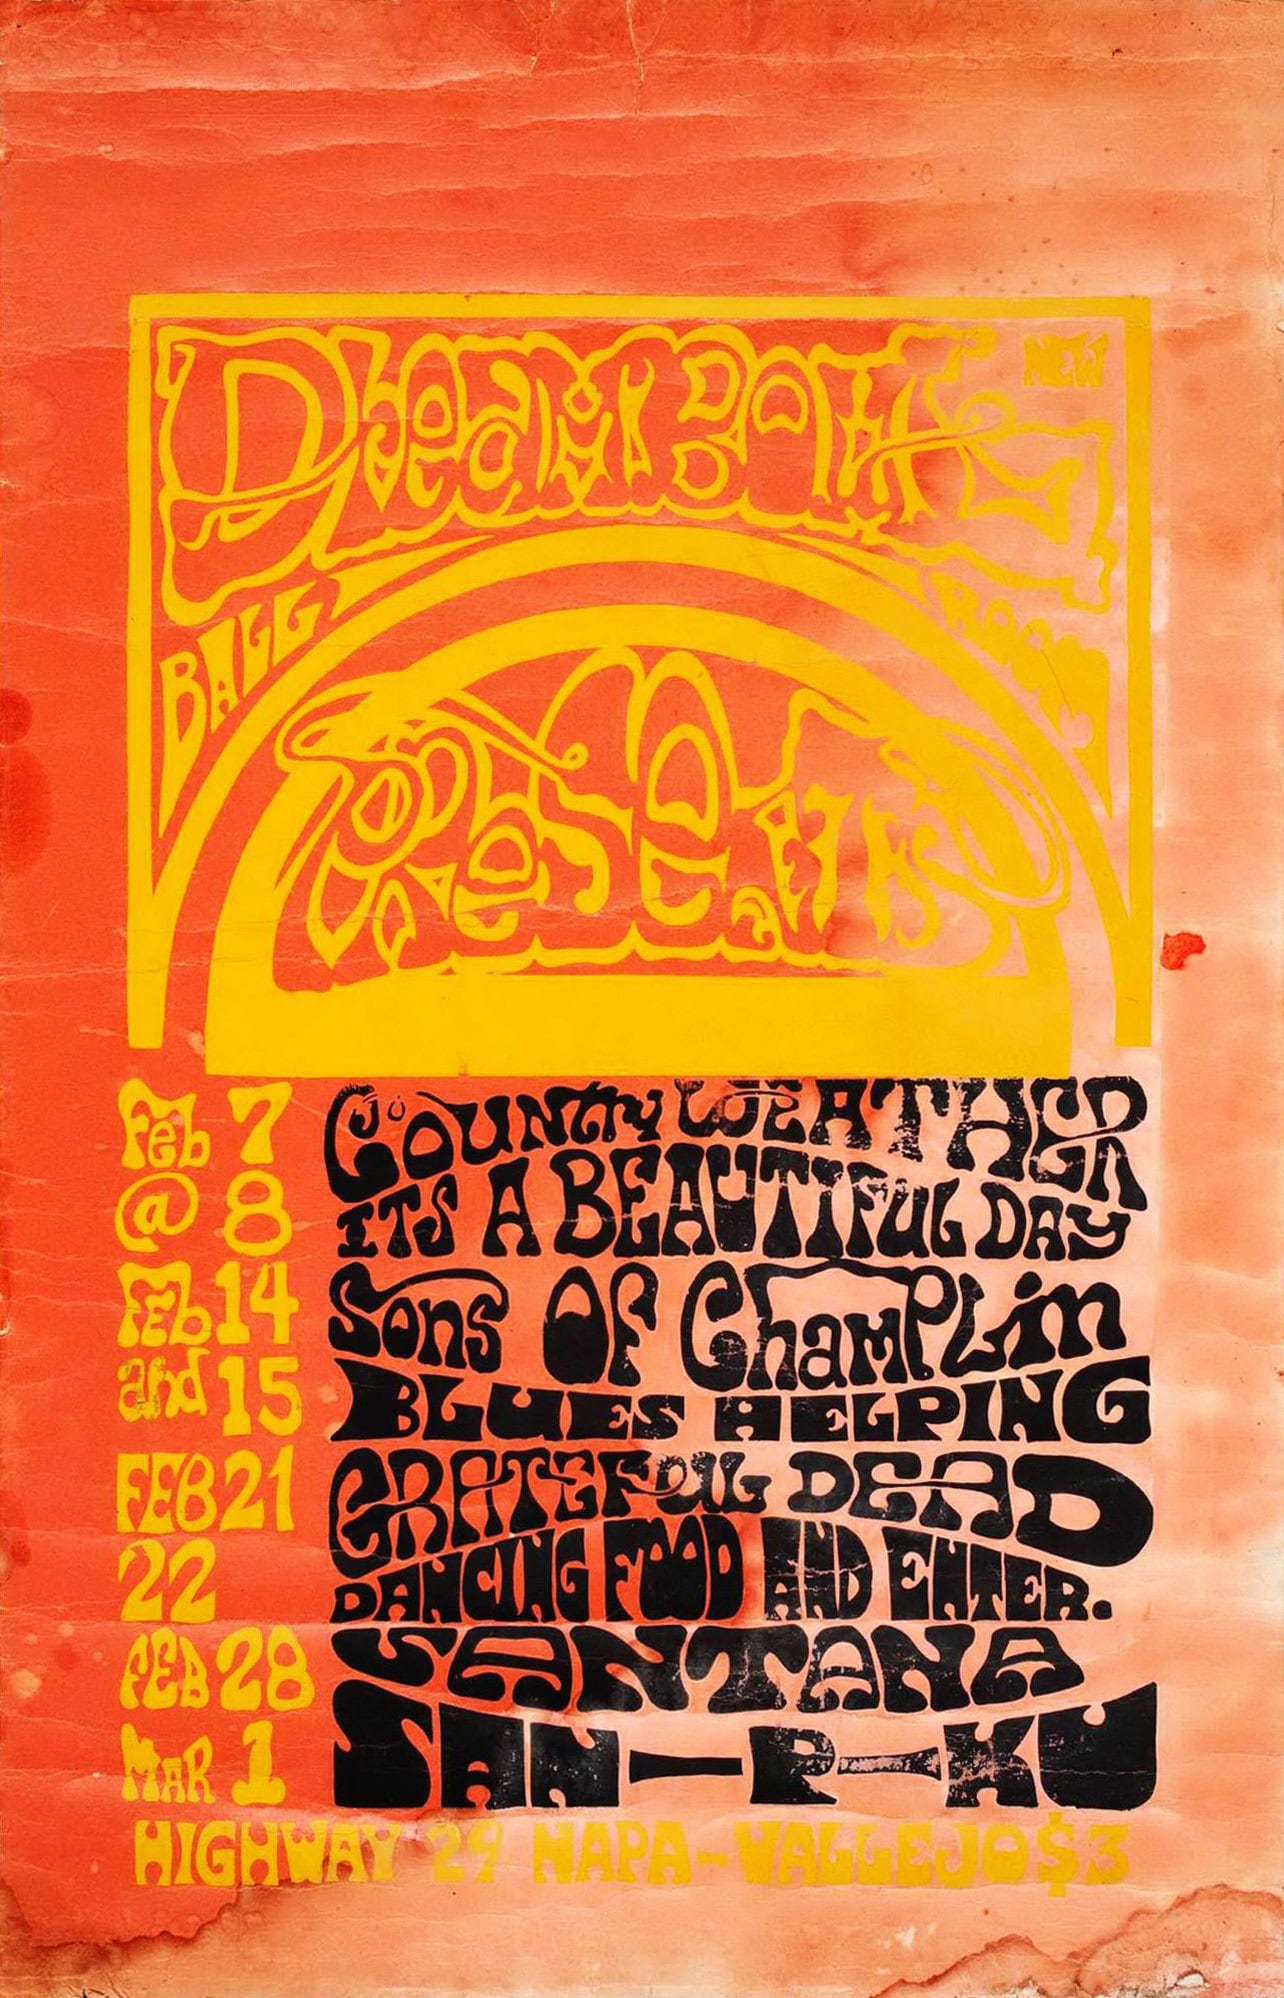 Dream Bowl
NEW
BALL ROOM
Feb 7 Country Weather
@ 8 ITS A BEAUTIFUL DAY
Feb 14 Sons OF Champlin
and 15 BLUES HELPING
FEB 21 GRATEFUL DEAD
22 DANCING FOOD AND ENTER.
FEB 28 SANTANA
MAR 1 SAN-P-KU
HIGHWAY 29 NAPA-VALLEJO $3